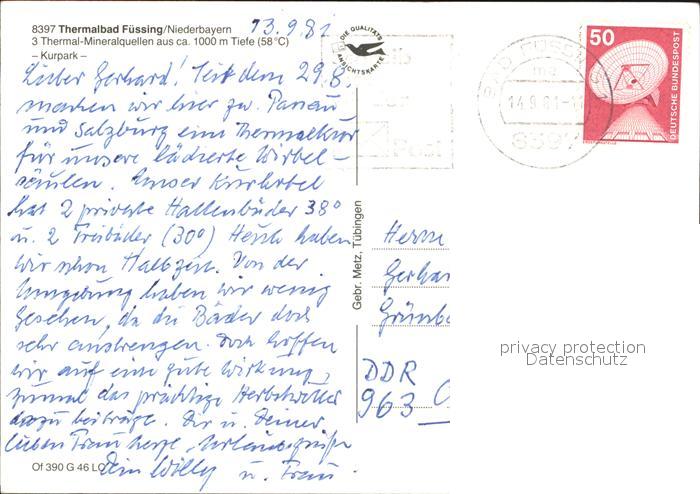 8397 Thermalbad Füssing/Niederbayern
3 Thermal-Mineralquellen aus ca. 1000 m Tiefe (58°C)
– Kurpark –
13.9.81
DIE QUALITÄTS
ANSICHTSKARTE
Lieber Gerhard! Seit dem 29.8.
machen wir hier zw. Passau
und Salzburg eine Thermalkur
für unsere lädierte Wirbel-
säulen. Unser Kurhotel
hat 2 private Hallenbäder 38°
u. 2 Freibäder (30°) Heute haben
wir schon Halbzeit. Von der
Umgebung haben wir wenig
gesehen, da die Bäder doch
sehr anstrengen. Doch hoffen
wir auf eine gute Wirkung,
zumal das prächtige Herbstwetter
dazu beiträgt. Dir u. Deiner
lieben Frau herzl. Urlaubsgrüße
Dein Willy u. Frau
Of 390 G 46 LG
Gebr. Metz, Tübingen
14.9.81-11
8397
Post
50
DEUTSCHE BUNDESPOST
Herrn
Gerhar
Grünbe
DDR
963 C
privacy protection
Datenschutz